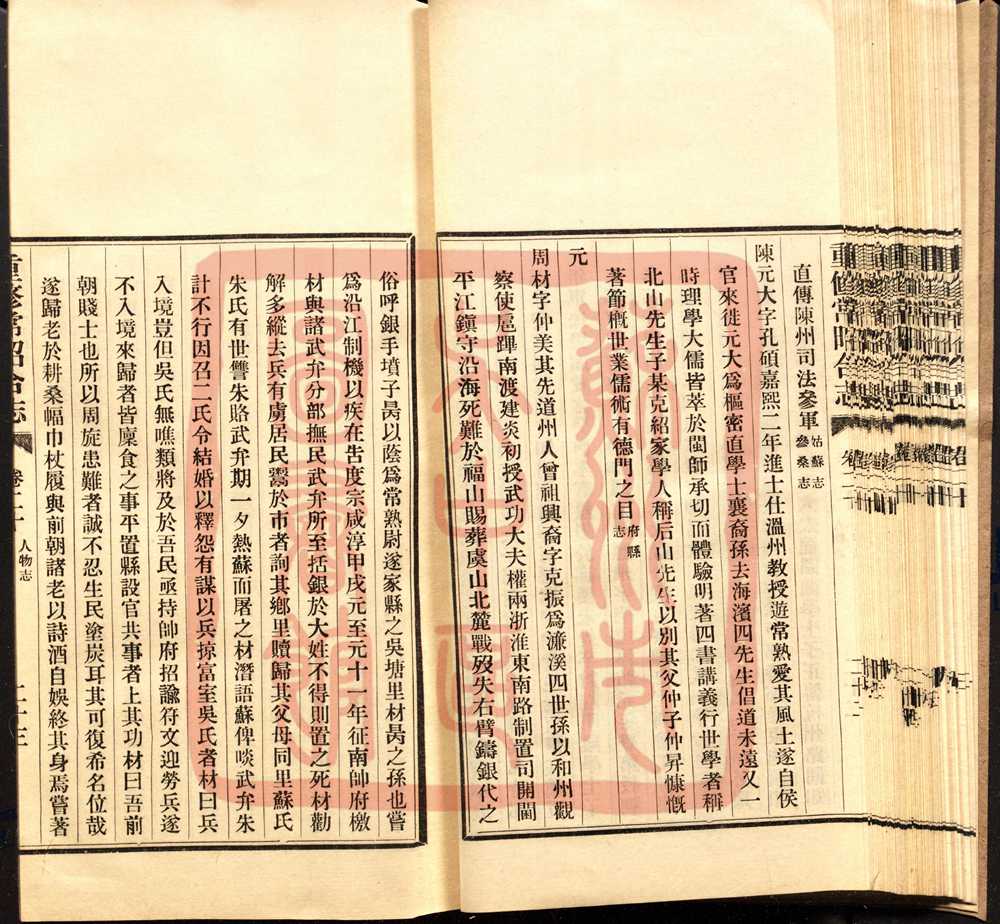 直傳陳州司法參軍姑蘇志參桑志
陳元大字孔碩嘉熙二年進士仕溫州教授遊常熟愛其風土遂自侯
官來徙元大爲樞密直學士襄裔孫去海濱四先生倡道未遠又一
時理學大儒皆萃於閩師承切而體驗明著四書講義行世學者稱
北山先生子某克紹家學人稱后山先生以別其父仲子仲昇慷慨
著節槪世業儒術有德門之目府縣志
元
周材字仲美其先道州人曾祖興裔字克振爲濂溪四世孫以和州觀
察使扈蹕南渡建炎初授武功大夫權兩浙淮東南路制置司開閫
平江鎭守沿海死難於福山賜葬虞山北麓戰歿失右臂鑄銀代之
俗呼銀手墳子昺以蔭爲常熟尉遂家縣之吳塘里材昺之孫也嘗
爲沿江制機以疾在吿度宗咸淳甲戌元至元十一年征南帥府檄
材與諸武弁分部撫民武弁所至括銀於大姓不得則置之死材勸
解多縱去兵有虜居民鬻於市者詢其鄕里贖歸其父母同里蘇氏
朱氏有世讐朱賂武弁期一夕熱蘇而屠之材潛語蘇俾啖武弁朱
計不行因召二氏令結婚以釋怨有謀以兵掠富室吳氏者材曰兵
入境豈但吳氏無噍類將及於吾民亟持帥府招諭符文迎勞兵遂
不入境來歸者皆廩食之事平置縣設官共事者上其功材曰吾前
朝賤士也所以周旋患難者誠不忍生民塗炭耳其可復希名位哉
遂歸老於耕桑幅巾杖履與前朝諸老以詩酒自娛終其身焉嘗著
重修常昭合志
卷二十
人物志
二十三